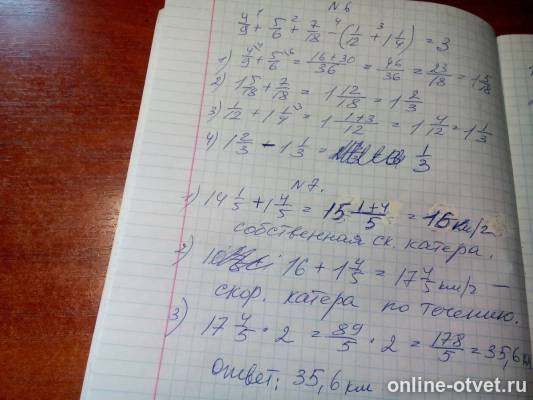 N 6
4/9 + 5/6 + 7/18 - (1/12 + 1 1/4) = 3
1) 4/9 + 5/6 = 16+30/36 = 46/36 = 23/18 = 1 5/18
2) 1 5/18 + 7/18 = 1 12/18 = 1 2/3
3) 1/12 + 1 1/4 = 1 1+3/12 = 1 4/12 = 1 1/3
4) 1 2/3 - 1 1/3 = 1/3
N 7.
1) 14 1/5 + 1 4/5 = 15 1+4/5 = 16 км/г
собственная ск. катера.
2) 16 + 1 4/5 = 17 4/5 км/г —
скор. катера по течению.
3) 17 4/5 · 2 = 89/5 · 2 = 178/5 = 35,6 км
ответ: 35,6 км
online-otvet.ru